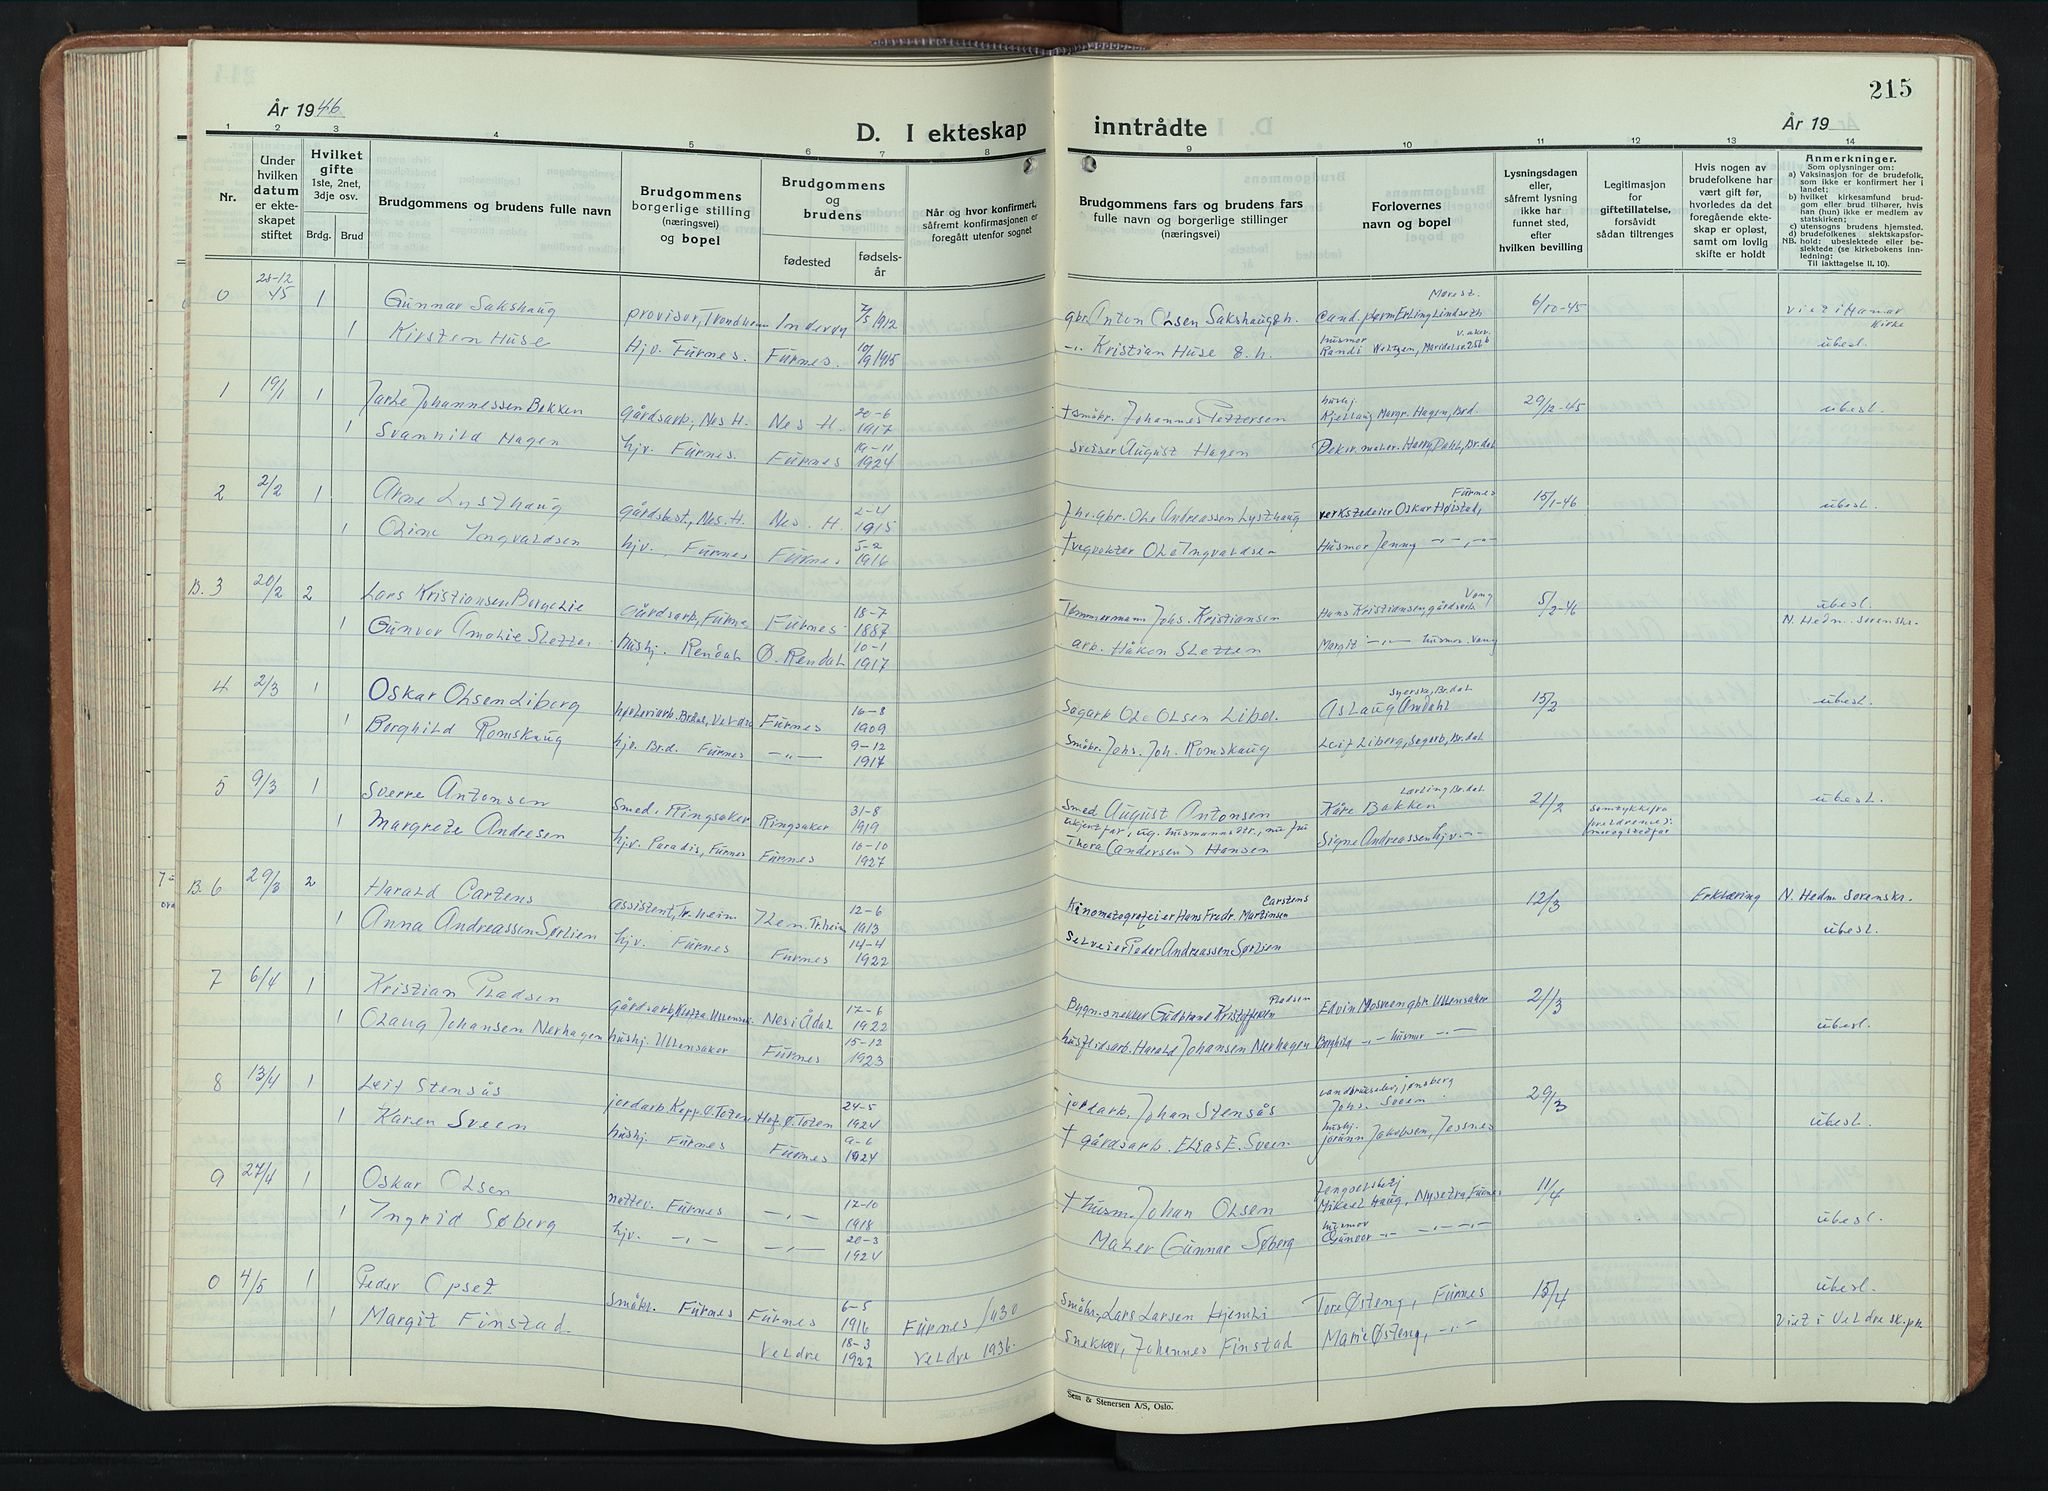 215
År 1946
D. I ekteskap inntrådte
År 19
1 2 3 4 5 6 7 8 9 10 11 12 13 14
Nr.
Under hvilken datum er ekteskapet stiftet
Hvilket gifte 1ste, 2net, 3dje osv.
Brdg. Brud
Brudgommens og brudens fulle navn
Brudgommens borgerlige stilling (næringsvei) og bopel
Brudgommens og brudens
fødested
fødselsår
Når og hvor konfirmert, såfremt konfirmasjonen er foregått utenfor sognet
Brudgommens fars og brudens fars fulle navn og borgerlige stillinger (næringsvei)
Forlovernes navn og bopel
Lysningsdagen eller, såfremt lysning ikke har funnet sted, efter hvilken bevilling
Legitimasjon for giftetillatelse, forsåvidt sådan tiltrenges
Hvis nogen av brudefolkene har vært gift før, hvorledes da det foregående ekteskap er opløst, samt om lovlig skifte er holdt
Anmerkninger.
Som oplysninger om:
a) Vaksinasjon for de brudefolk, som ikke er konfirmert her i landet;
b) hvilket kirkesamfund brudgom eller brud tilhører, hvis han (hun) ikke er medlem av statskirken;
c) utensogns brudens hjemsted.
d) brudefolkenes slektskapsforhold: ubeslektede eller beslektede (se kirkebokens innledning:
NB.
Til iakttagelse II. 10).
0 28-12 45 1 Gunnar Sakshaug provisor, Trondheim Inderøy 7/5 1912 gbr. Anton Olsen Sakshaug Cand. pharm Erling Lindseth 6/10-45 viet i Hamar Kirke
1 Kirsten Huse Hjv. Furnes. Furnes. 10/9 1915 -"- Kristian Huse husmor Randi ubesl.
1 19/1 1 Jarle Johannessen Bakken gårdsarb, Nes H. Nes H. 20-6 1917 † småbr. Johannes Pettersen hushj. Kjellaug Margr. Hagen, Brd. 29/12-45 ubesl.
1 Svanhild Hagen hjv. Furnes. Furnes 19-11 1924 sveiser August Hagen Dekor. maler. Harry Dahl, Br.dal
2 2/2 1 Arne Lysthaug gårdsbest, Nes. H. Nes. H. 2-4 1915 fhv. gbr. Ole Andreassen Lysthaug verkstedeier Oskar Høistad, Furnes 15/1-46 ubesl.
1 Oline Ingvaldsen hjv., Furnes Furnes 5-2 1916 † vegvokter Ole Ingvaldsen Husmor Jenny -"-,-"-
B. 3 20/2 2 Lars Kristiansen Borgelie Gårdsarb, Furnes Furnes 18-7 1887 Tømmermann Johs. Kristiansen Hans Kristiansen, gårdsarb Vang 5/2-46 ubesl. N. Hedm. sorenskr.
1 Gunvor Amalie Sletten hushj. Rendal Ø. Rendal 10-1 1917 arb. Håkon Sletten Margit -"- husmor. Vang
4 2/3 1 Oskar Olsen Liberg Furnes 16-8 1909 Sagarb Ole Olsen Aslaug Amdahl syerske, Br.dal 15/2 ubesl.
1 Borghild Romskaug hjv. Br.d. Furnes -"- 9-12 1917 Småbr. Johs. Joh. Romskaug Leif Liberg, Sagarb, Br.dal
5 9/3 1 Sverre Antonsen Smed, Ringsaker Ringsaker 31-8 1919 Smed August Antonsen Kåre Bakken Lærling Br.dal 21/2 samtykke fra foreldrene: mor og stedfar ubesl.
1 Margrete Andresen hjv. Paradis, Furnes Furnes 16-10 1927 Ukjent far, ug. husmannsdtr., nu fru Thora (Andersen) Hansen Signe Andreassen hjv. -"-
B. 6 29/3 2 Harald Cartens assistent, Tr.heim Tr.heim 12-6 1913 Kinomatografeier Hans Fredr. Martinsen Carstens 12/3 Erklæring N. Hedm Sorenskr.
1 Anna Andreassen Sørlien hjv. Furnes Furnes 14-4 1922 Selveier Peder Andreassen Sørlien ubesl.
7 6/4 1 Kristian Pladsen Nes i Ådal 17-6 1922 Bygn.snekker Gudbrand Kristoffersen Pladsen Edvin Mosveen gbr. Ullensaker 21/3
1 Olaug Johansen Nerhagen hushj. Ullensaker Furnes 15-12 1923 husflidsarb. Harald Johansen Nerhagen Borghild -"- husmor -"- ubesl.
8 13/4 1 Leif Stensås jordarb. Kapp Ø. Toten Hof. Ø. Toten 24-5 1924 jordarb. Johan Stensås Johs. Sveen 29/3
1 Karen Sveen hushj. Furnes Furnes 9-6 1924 † gårdsarb. Elias E. Sveen hushj. Johann Jakobsen, Jessnes ubesl.
9 27/4 1 Oskar Olsen nattev. Furnes -"- 17-10 1918 † husm. Johan Olsen Fengselsbetj Mikael Haug, Nysetra, Furnes 11/4
1 Ingrid Søberg hjv. -"- -"- 20-3 1924 Maler Gunnar Søberg husmor Gunvor -"- -"- -"- ubesl.
0 4/5 1 Peder Opset Småbr. Furnes Furnes 6-5 1916 Furnes 1930 Småbr, Lars Larsen Hjemli Tore Østeng, Furnes 15/4 ubesl.
1 Margit Finstad. Veldre 18-3 1922 Veldre 1936. Snekker, Johannes Finstad Marie Østeng, -"- Viet i Veldre sk.pr
Sem & Stenersen A/S, Oslo.